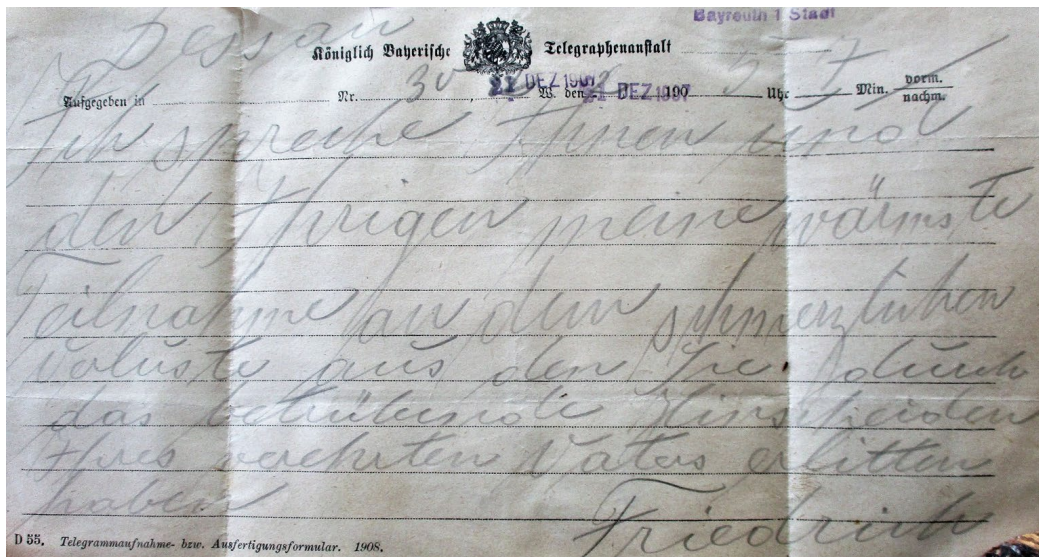 Bayreuth 1 Stadt
Dessau
Königlich Bayerische Telegraphenanstalt
Aufgegeben in Nr. 30, W. den 21 DEZ 1907 190 Uhr Min. vorm. nachm.
Ich spreche Ihnen und
den Ihrigen meine wärmste
Teilnahme an dem schmerzlichen
Verluste aus den Sie durch
das betrübende Hinscheiden
Ihres verehrten Vaters erlitten
haben Friedrich
D 55. Telegrammaufnahme- bzw. Ausfertigungsformular. 1908.